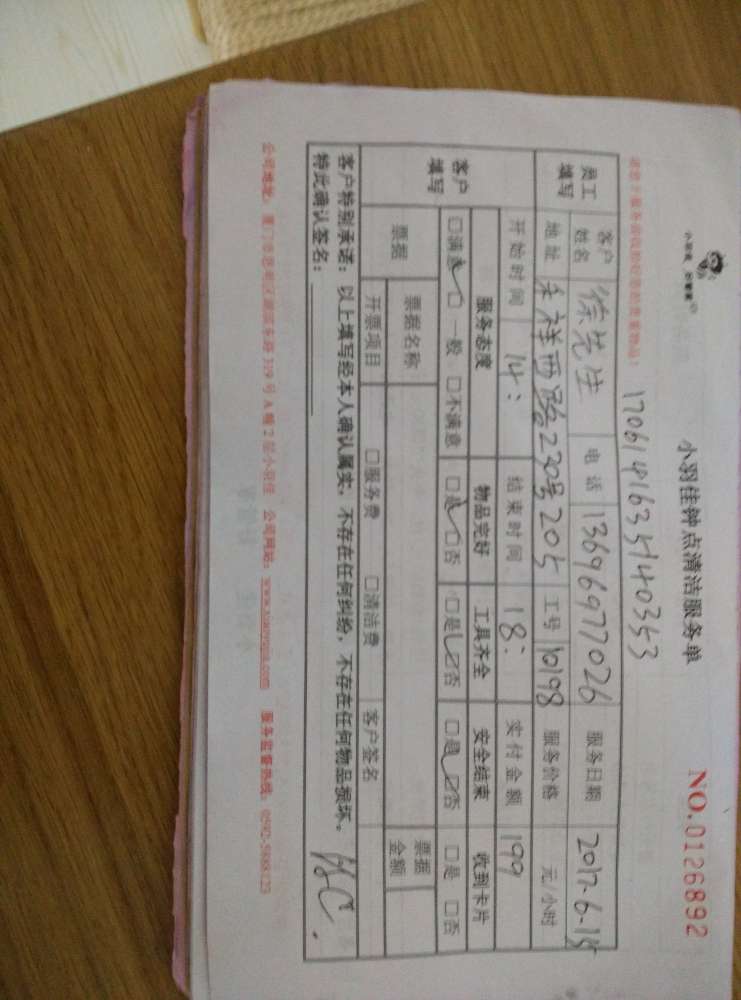 小羽佳钟点清洁服务单
NO.0126892
17061416335140353
员工填写 客户姓名 徐先生 电话 13696977026 服务日期 2017-6-15
地址 禾祥西路230号205 工号 10198 服务价格 元/小时
开始时间 14: 结束时间 18: 实付金额 199
客户填写 服务态度 物品完好 工具齐全 安全结束 收到卡片
□满意 □一般 □不满意 □是 □否 □是 □否 □是 □否 □是 □否
票据 票据名称 票据金额
开票项目 □服务费 □清洁费 客户签名
客户特别承诺：以上填写经本人确认属实，不存在任何纠纷，不存在任何物品损坏。
特此确认签名：
公司地址： 319号A幢2层小羽佳 公司网站： 服务监督热线：